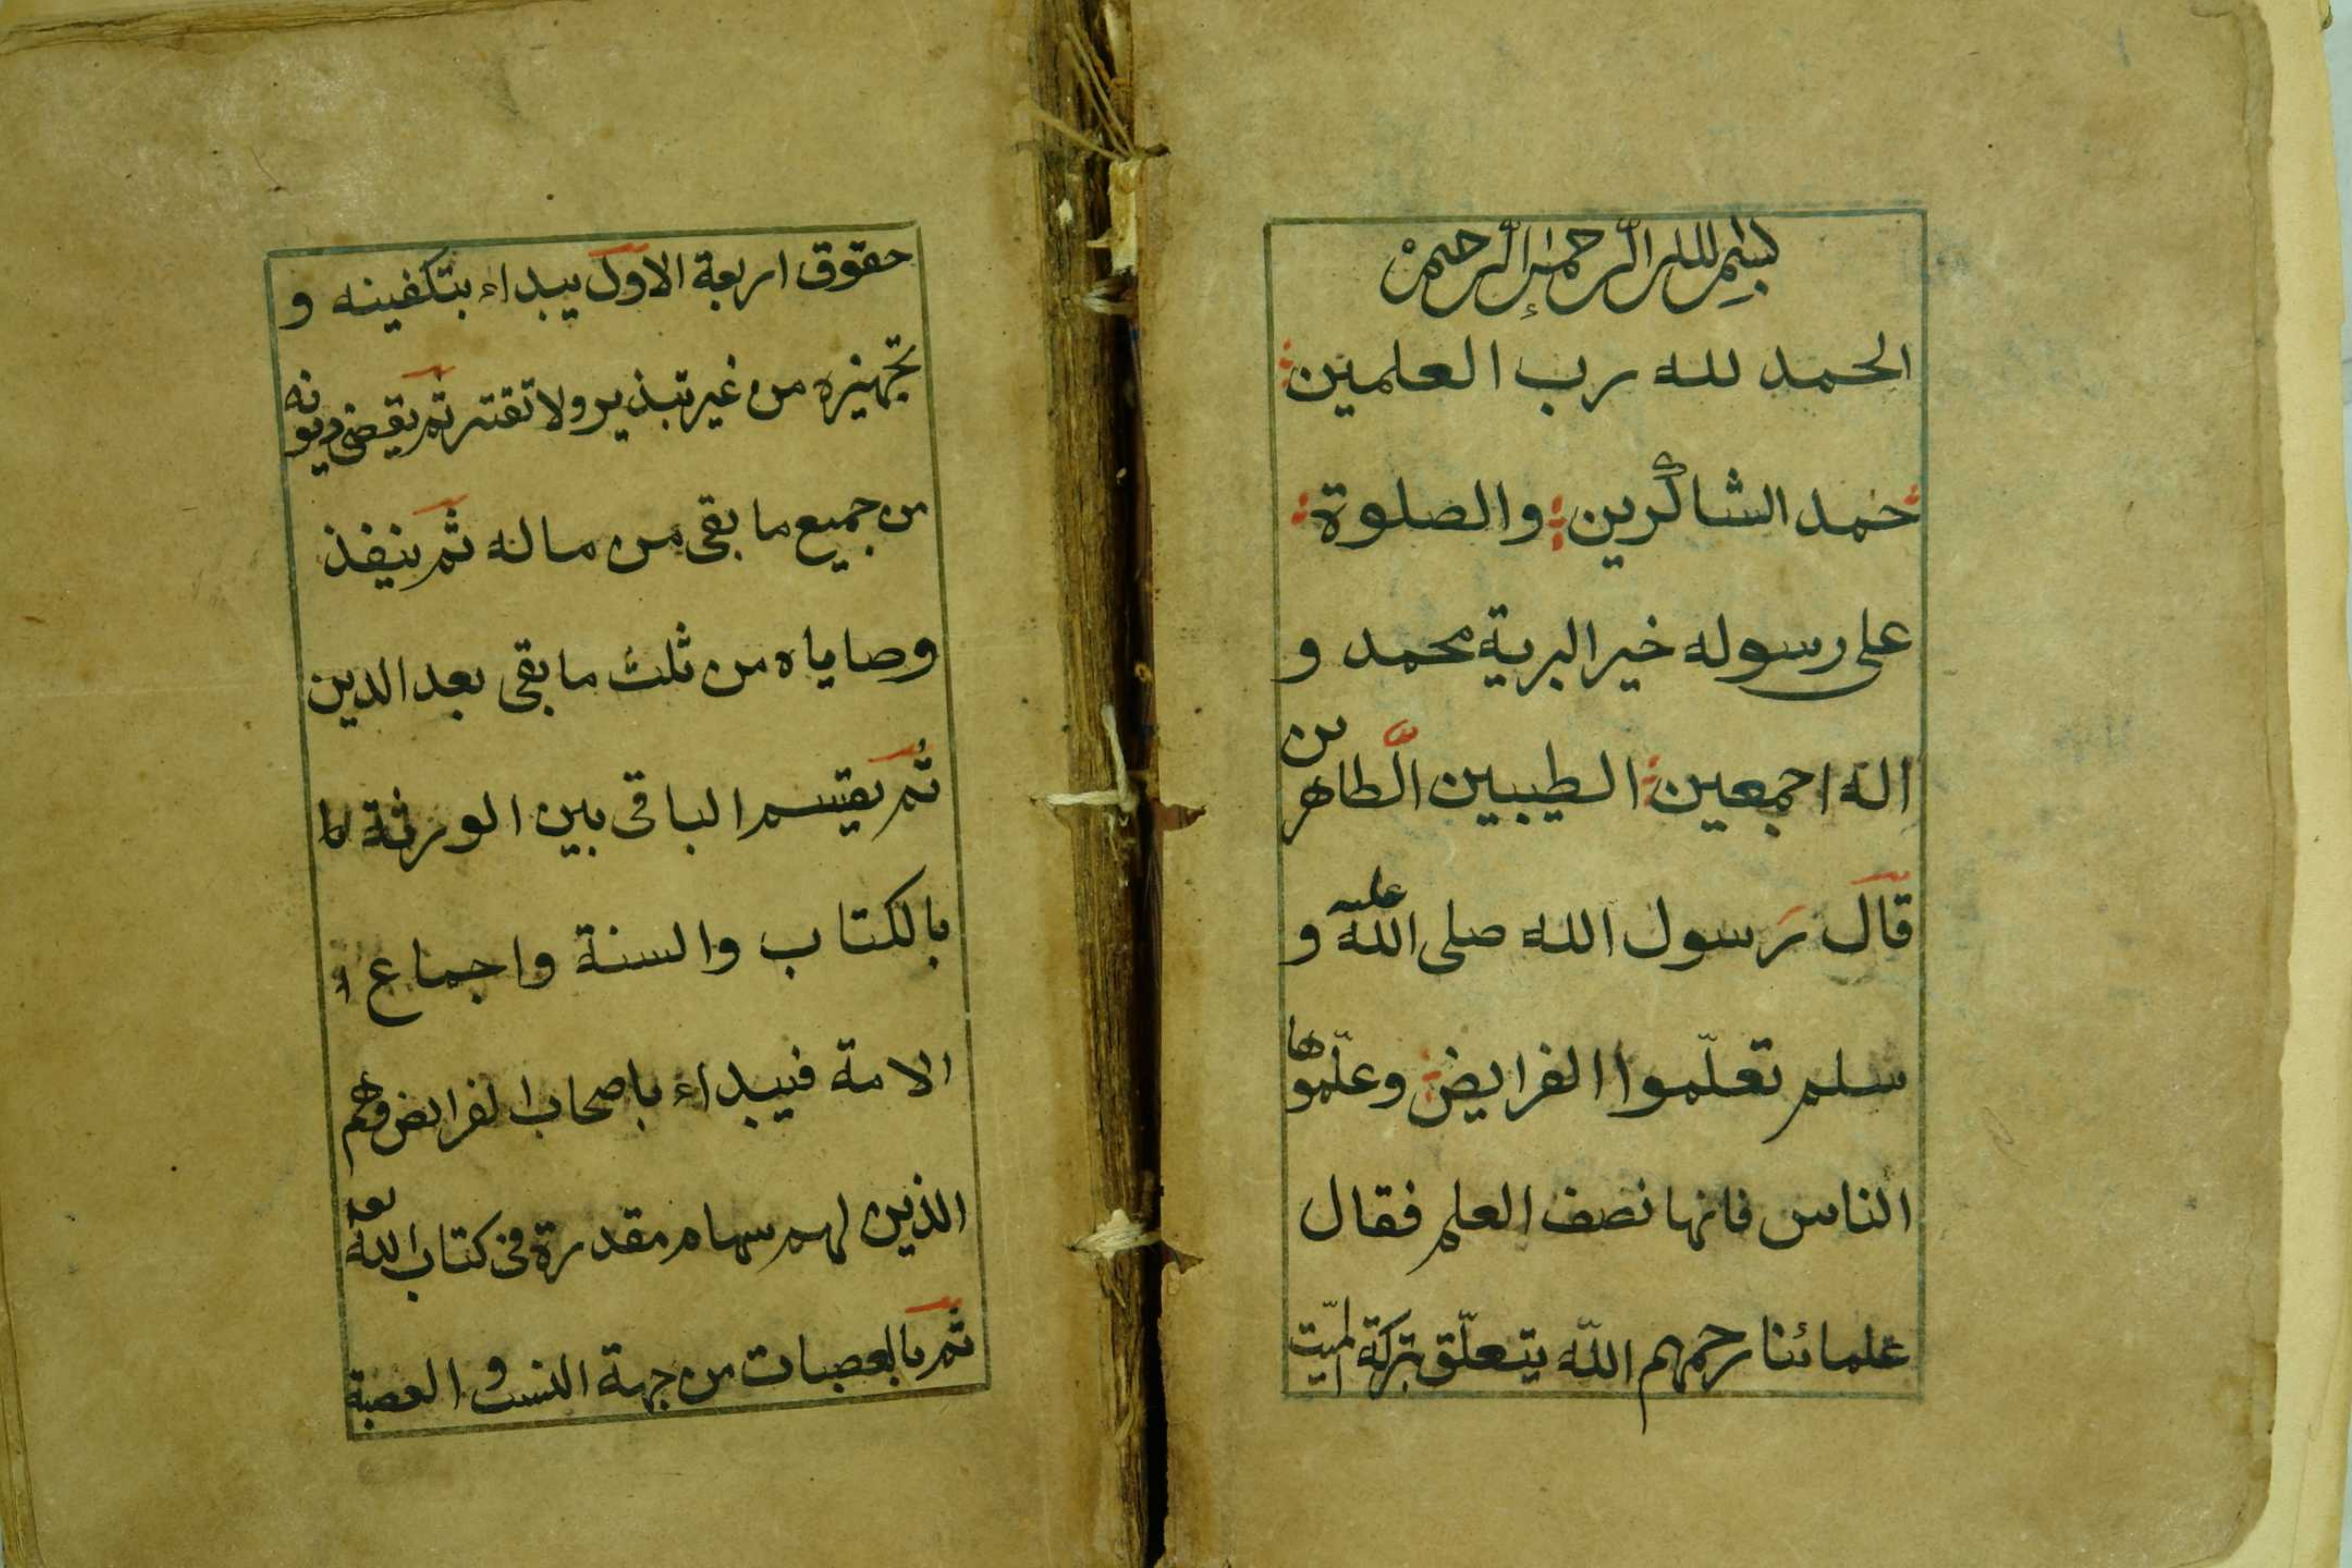 بسم الله الرحمن الرحيم
الحمد لله رب العلمين
حمد الشاكرين والصلوة
على رسوله خير البرية محمد و
اله اجمعين الطيبين الطاهرين
قال رسول الله صلى الله عليه و
سلم تعلّموا الفرايض وعلّموها
الناس فانها نصف العلم فقال
علمائنا رحمهم اللّه يتعلّق بتركة الميّت
حقوق اربعة الاول يبداء بتكفينه و
تجهيزه من غير تبذير ولا تقتير ثم يقضى ديونه
من جميع ما بقى من ماله ثم ينفذ
وصاياه من ثلث ما بقى بعد الدين
ثم يقسم الباقى بين الورثة
بالكتاب والسنة واجماع
الامة فيبداء باصحاب الفرايض وهم
الذين لهم سهام مقدرة فى كتاب الله تعا
ثم بالعصبات من جهة النسب و العصبة